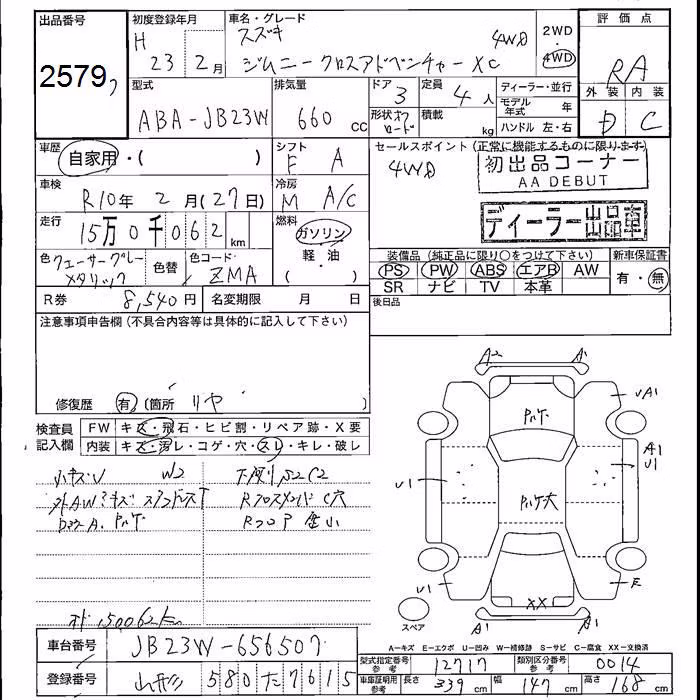 出品番号
2579
初度登録年月
H 23 2月
車名・グレード
スズキ 4WD
ジムニー クロスアドベンチャー XC
2WD
4WD
評価点
RA
外装 内装
D C
型式
ABA-JB23W
排気量
660 cc
ドア
3
定員
4人
形状
積載
kg
ディーラー・並行
モデル年式 年
ハンドル 左・右
車歴
自家用・( )
シフト
F A
セールスポイント (正常に機能するものに限ります)
4WD
初出品コーナー
AA DEBUT
ディーラー出品車
車検
R10年 2月(27日)
冷房
M A/C
走行
15万0千062 km
燃料
ガソリン
軽・油
( )
色 クェーサーグレーメタリック
色替
色コード
ZMA
装備品 (純正品に限り○をつけて下さい)
PS PW ABS エアB AW
SR ナビ TV 本革
新車保証書
有・無
R券 8,540円
名変期限 月 日
後日品
注意事項申告欄(不具合内容等は具体的に記入して下さい)
修復歴 有 (箇所 リヤ )
検査員
記入欄
FW キズ・飛石・ヒビ割・リペア跡・X要
内装 キズ・汚レ・コゲ・穴・スレ・キレ・破レ
小キズU W2
下廻りS2C2
C穴
Rフロア
A2 A1
UA1
A1
U1
U1
U1
E
XX
スペア
A-キズ E-エクボ U-凹み W-補修跡 S-サビ C-腐食 XX-交換済
車台番号
JB23W-656507
登録番号
山形 580 た 7615
型式指定番号
参考
12717
類別区分番号
参考
0014
車庫証明用
参考
長さ 339 cm
幅 147 cm
高さ 168 cm